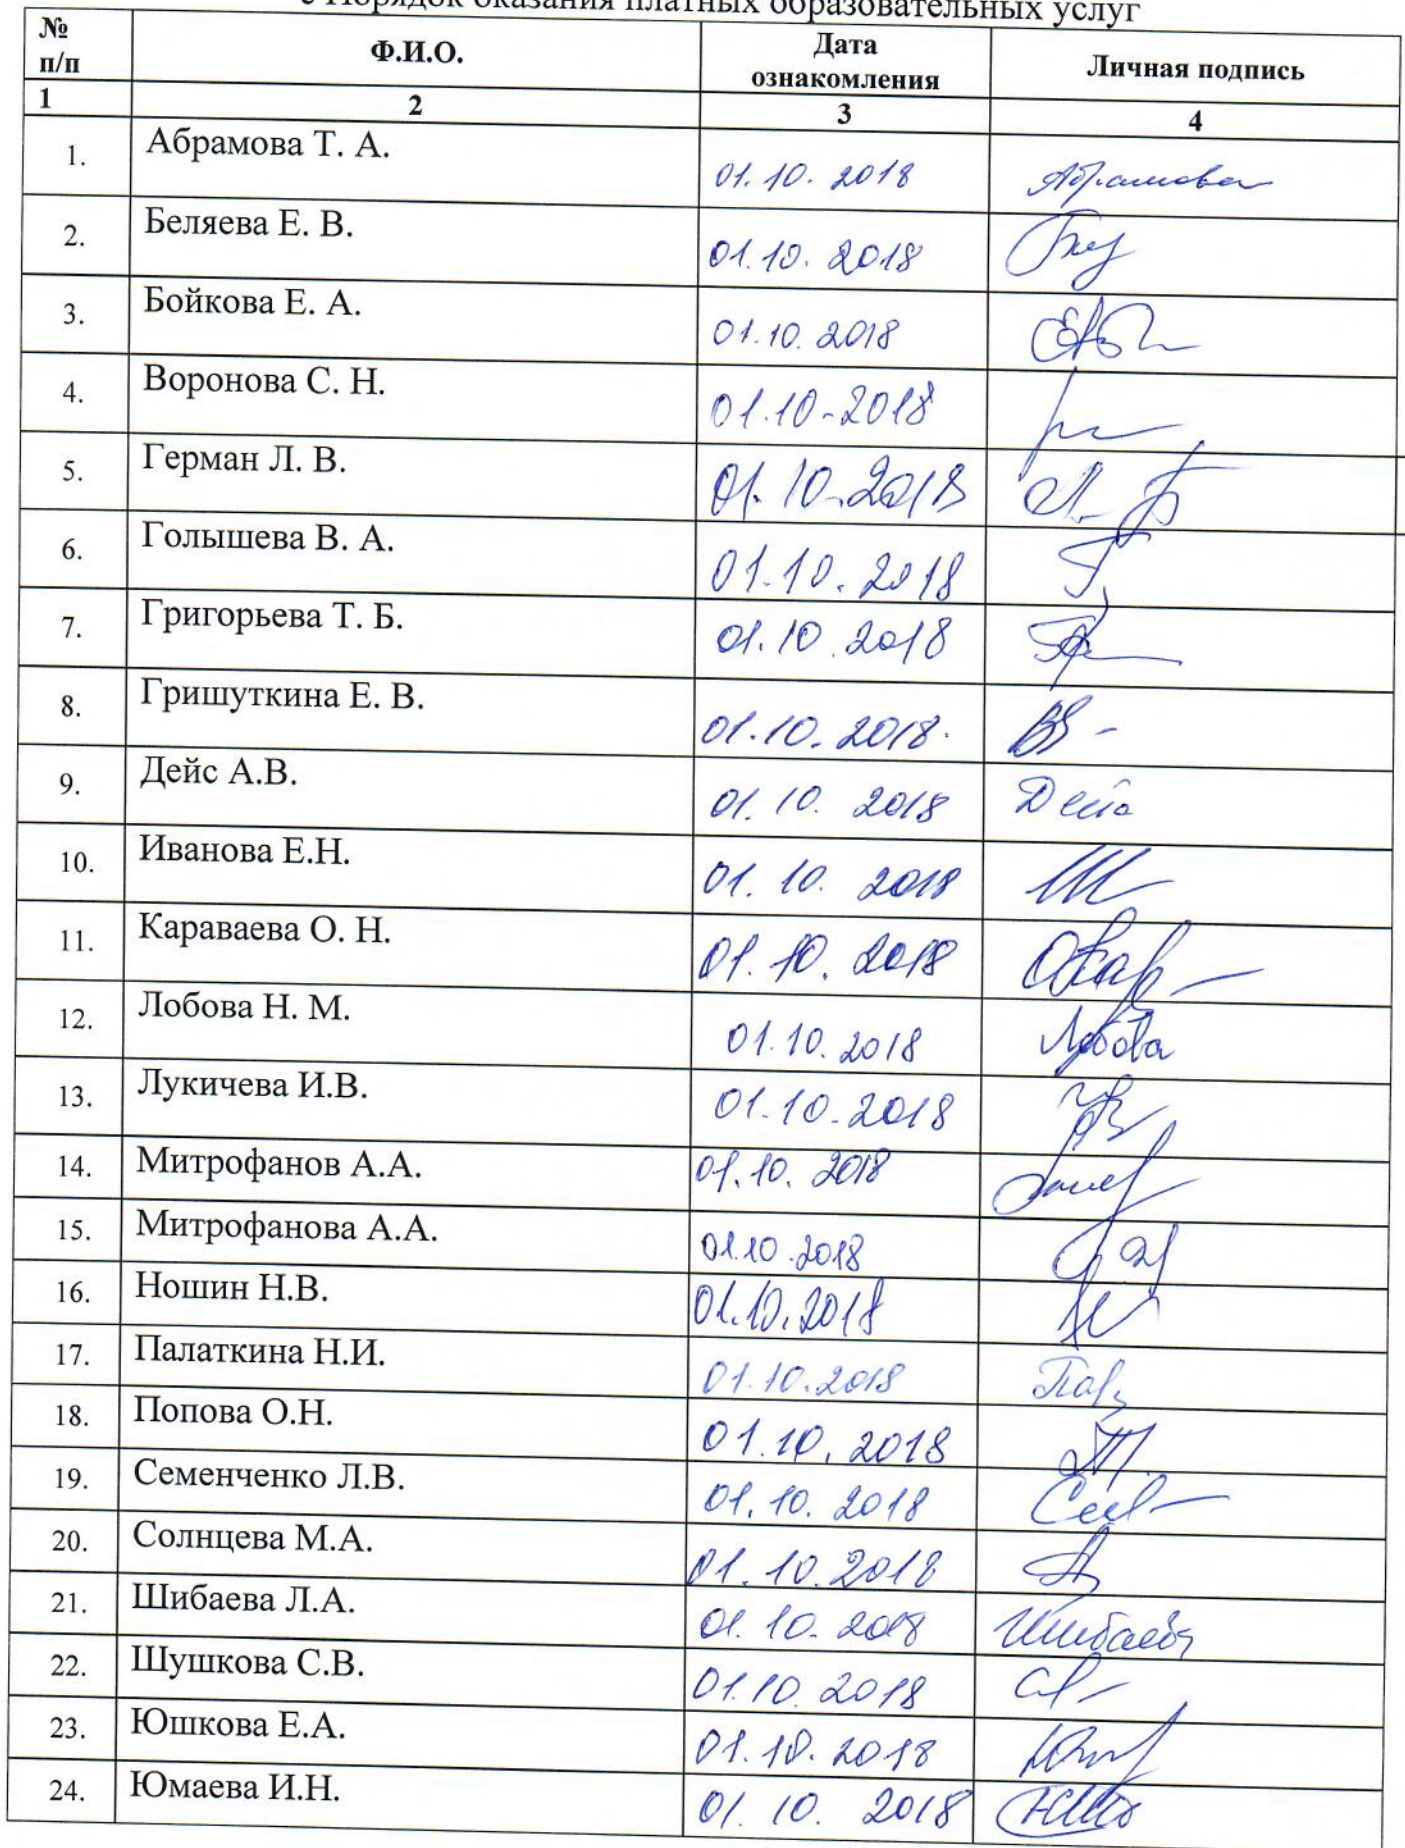 с Порядок оказания платных образовательных услуг
№ п/п Ф.И.О. Дата ознакомления Личная подпись
1 2 3 4
1. Абрамова Т. А. 01.10.2018 Абрамова
2. Беляева Е. В. 01.10.2018
3. Бойкова Е. А. 01.10.2018
4. Воронова С. Н. 01.10-2018
5. Герман Л. В. 01.10.2018
6. Голышева В. А. 01.10.2018
7. Григорьева Т. Б. 01.10.2018
8. Гришуткина Е. В. 01.10.2018.
9. Дейс А.В. 01.10.2018
10. Иванова Е.Н. 01.10.2018
11. Караваева О. Н. 01.10.2018
12. Лобова Н. М. 01.10.2018 Лобова
13. Лукичева И.В. 01.10.2018
14. Митрофанов А.А. 01.10.2018
15. Митрофанова А.А. 01.10.2018
16. Ношин Н.В. 01.10.2018
17. Палаткина Н.И. 01.10.2018
18. Попова О.Н. 01.10.2018
19. Семенченко Л.В. 01.10.2018
20. Солнцева М.А. 01.10.2018
21. Шибаева Л.А. 01.10.2018 Шибаева
22. Шушкова С.В. 01.10.2018
23. Юшкова Е.А. 01.10.2018
24. Юмаева И.Н. 01.10.2018